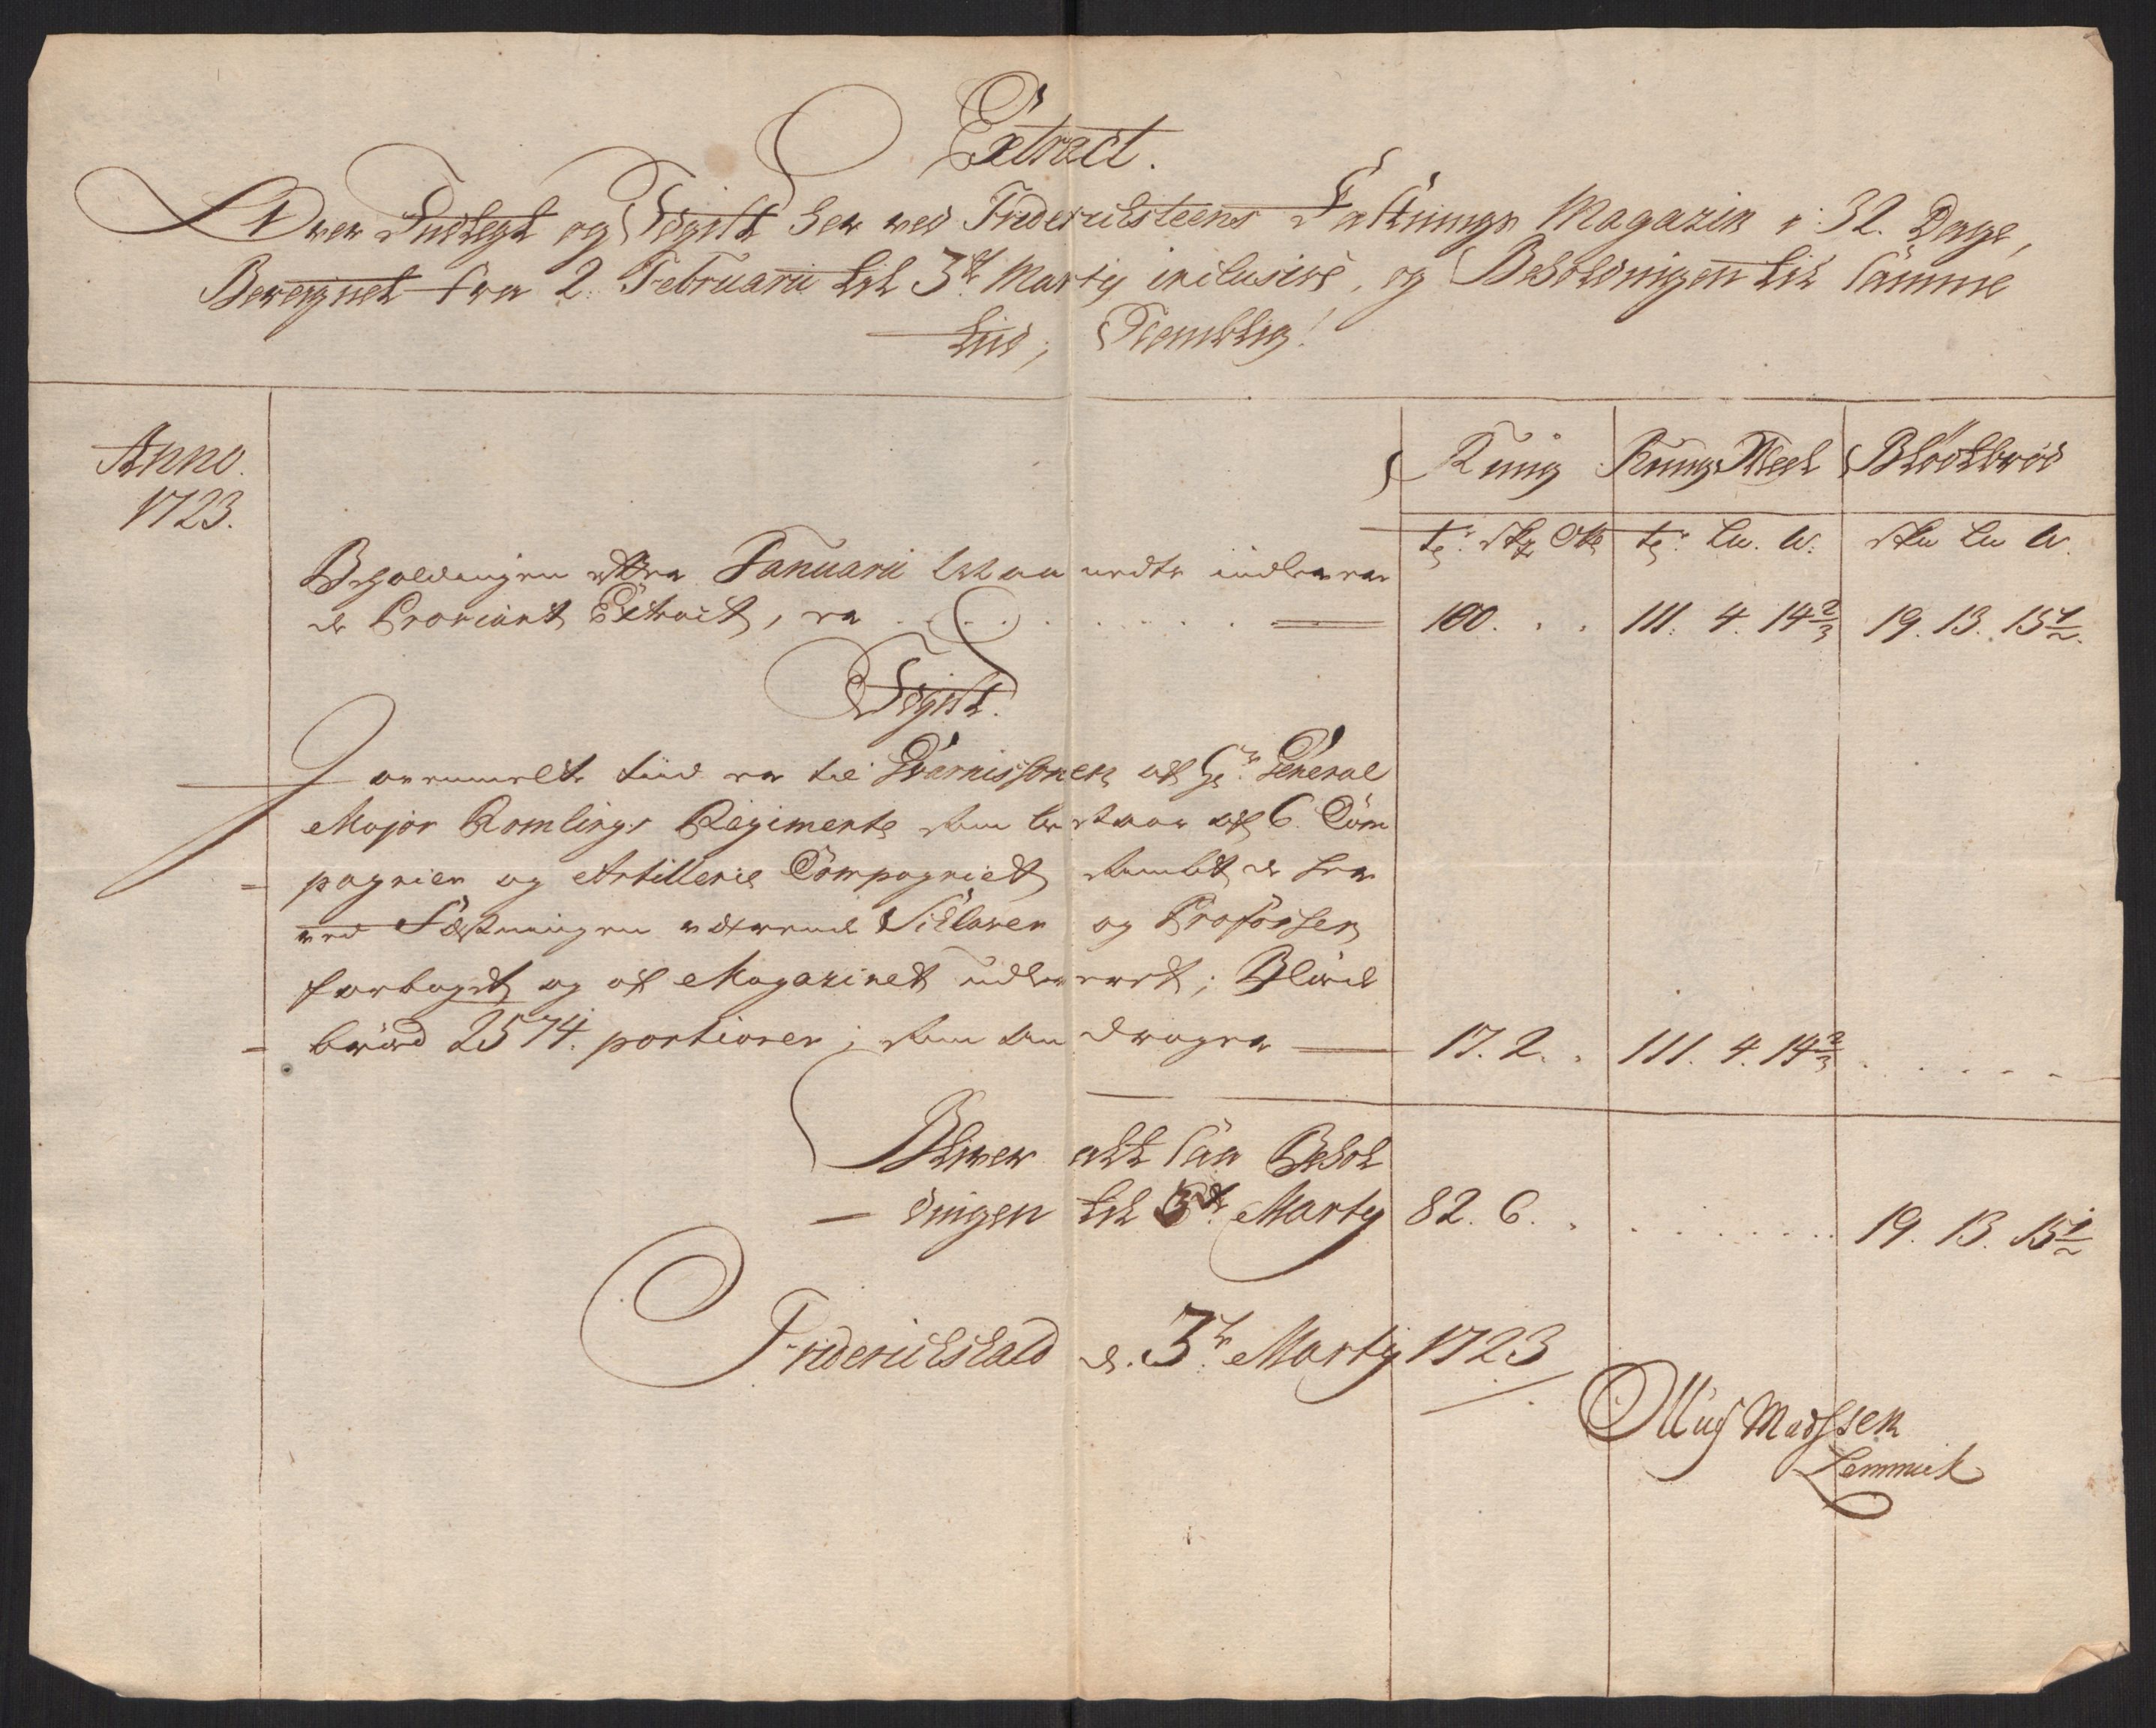 Extract.
Over Indtegt og Udgift her ved Friderichsteens Festnings Magazin i 32. Dage,
Beregnet fra 2. Februarii til 3de Martij inclusive, og Beholdningen til samme
tiid, Nemblig!
Anno.
1723.
Rug Rug Meel Blödtbröd
tr: Skp Ott tr: Lu. lb: Sku Lu lb.
Beholdningen effter Januarii Maanedts indleverede
Proviant Extract, er 100. . . 111. 4. 14 2/3 19. 13. 15 1/2.
Udgift.
I ovenmelte tiid er til Guarnissonen af Hr. General
Major Romlings Regimente som bestaar af 6. Com
pagnier og Artillerie Compagniet sambt de her
ved Fæstningen værende Sclaver og Profosser
forbaget og af Magazinet udleveret; Blöed
bröed 2574. portioner; som bedrager 17. 2. . 111. 4. 14 2/3 . . . .
Bliver altsaa Behol
dingen til 3de Martij 82. 6. . . . . . 19. 13. 15 1/2
Friderichshald d. 3de Martij 1723
Olluf Madssen
Lemmich